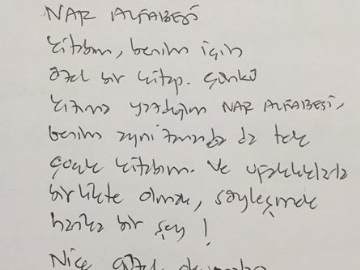 NAR ALFABESİ
kitabım, benim için
özel bir kitap. Çünkü
kızıma yazdığım NAR ALFABESİ,
benim aynı zamanda da tek
çocuk kitabım. Ve ufaklıklarla
birlikte olmak, söyleşmek
harika bir şey!
Nice güzel